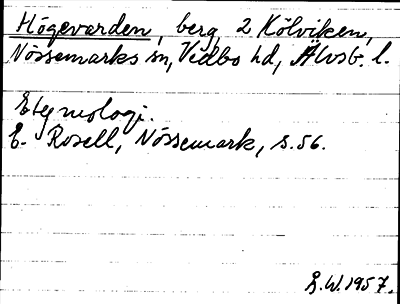 Högevarden, berg, 2 Kölviken,
Nössemarks sn, Vedbo hd, Älvsb. l.
Etymologi.
E. Rosell, Nössemark, s. 56.
G.W. 1957.